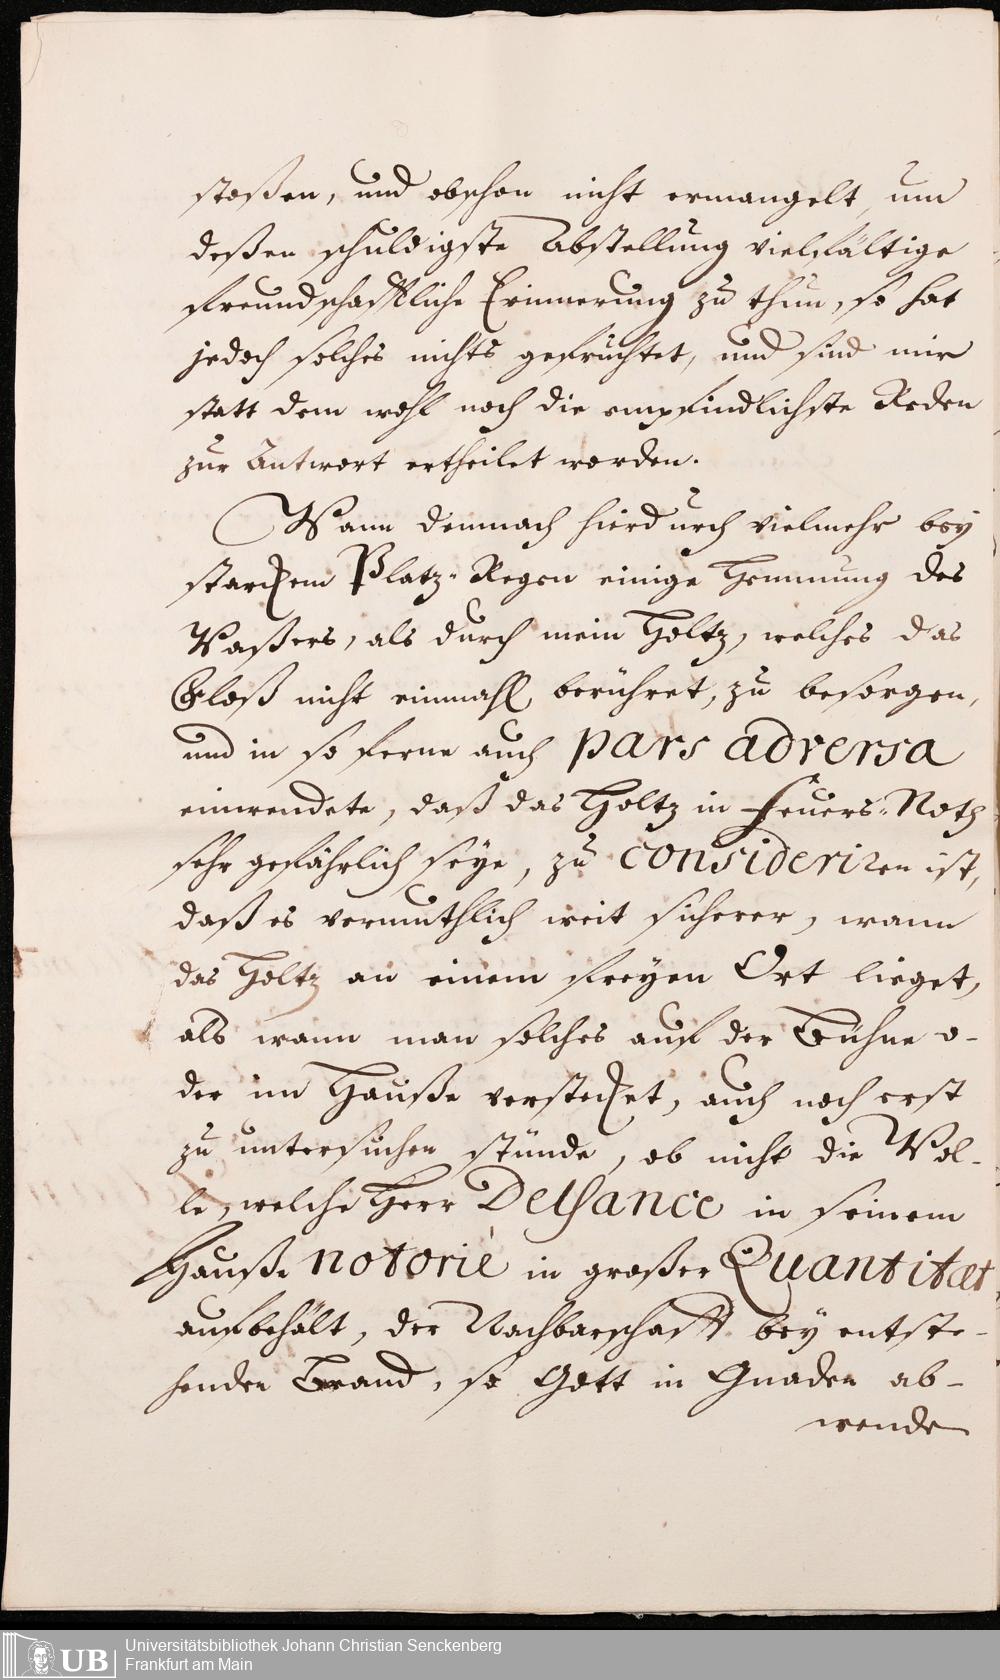 stoßen, und obschon nicht ermangelt, um
deßen schuldigste Abstellung vielfältige
freundschafftliche Erinnerung zu thun, so hat
jedoch solches nichts gefruchtet, und sind mir
statt dem wohl noch die empfindlichste Reden
zur Antwort ertheilet worden.
Wann demnach hierdurch vielmehr bey
starckem Platz-Regen einige Hemmung des
Waßers, als durch mein Holtz, welches das
Floß nicht einmahl berühret, zu besorgen,
und in so ferne auch pars adversa
einwendete, daß das Holtz in Feuers-Noth
sehr gefährlich seye, zu consideriren ist,
daß es vermuthlich weit sicherer, wann
das Holtz an einem freyen Ort lieget,
als wann man solches auf der Bühne o-
der im Hauße verstecket, auch noch erst
zu untersuchen stünde, ob nicht die Wol-
le, welche Herr Delsance in seinem
Hauße notorié in großer Quantitæt
aufbehält, der Nachbarschafft bey entste-
henden Brand, so Gott in Gnaden ab-
wende
Universitätsbibliothek Johann Christian Senckenberg
Frankfurt am Main
UB